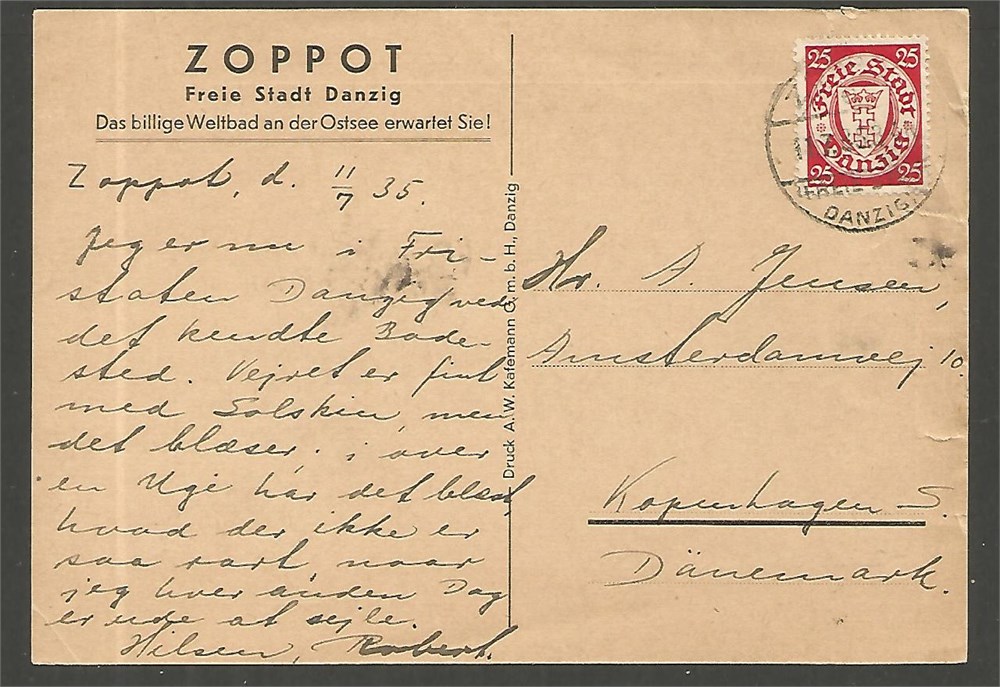 ZOPPOT
Freie Stadt Danzig
Das billige Weltbad an der Ostsee erwartet Sie!
Zoppot, d. 11/7 35.
Jeg er nu i Fri-
staten Danzig ved
det kendte Bade-
sted. Vejret er fint
med Solskin, men
det blæser. i over
en Uge har det blæst
hvad der ikke er
saa rart naar
jeg hver anden Dag
er ude at sejle.
Hilsen, Robert.
Druck A. W. Kafemann G. m. b. H., Danzig
25 25
Freie Stadt
Danzig
25 25
DANZIG
Hr. A. Jensen,
Amsterdamvej 10.
Kopenhagen S.
Dänemark.